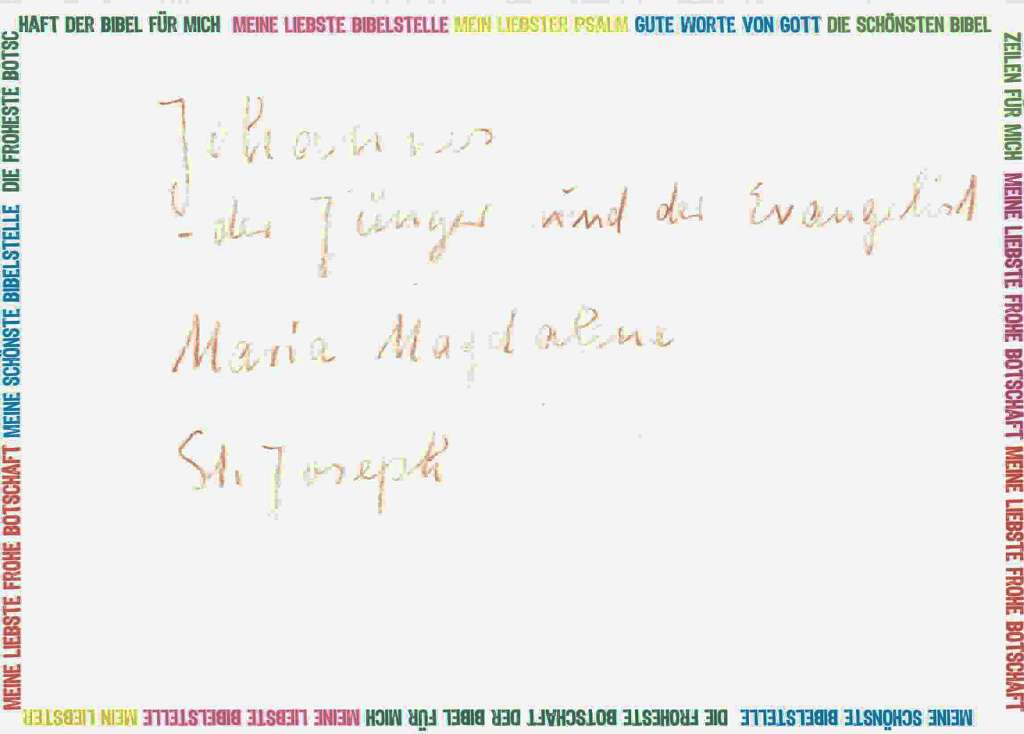 HAFT DER BIBEL FÜR MICH MEINE LIEBSTE BIBELSTELLE MEIN LIEBSTER PSALM GUTE WORTE VON GOTT DIE SCHÖNSTEN BIBEL
ZEILEN FÜR MICH MEINE LIEBSTE FROHE BOTSCHAFT MEINE LIEBSTE FROHE BOTSCHAFT
Johannes
- der Jünger und der Evangelist
Maria Magdalene
St. Joseph
MEINE SCHÖNSTE BIBELSTELLE DIE FROHESTE BOTSCHAFT DER BIBEL FÜR MICH MEINE LIEBSTE BIBELSTELLE MEIN LIEBSTER
MEINE LIEBSTE FROHE BOTSCHAFT MEINE SCHÖNSTE BIBELSTELLE DIE FROHESTE BOTSC